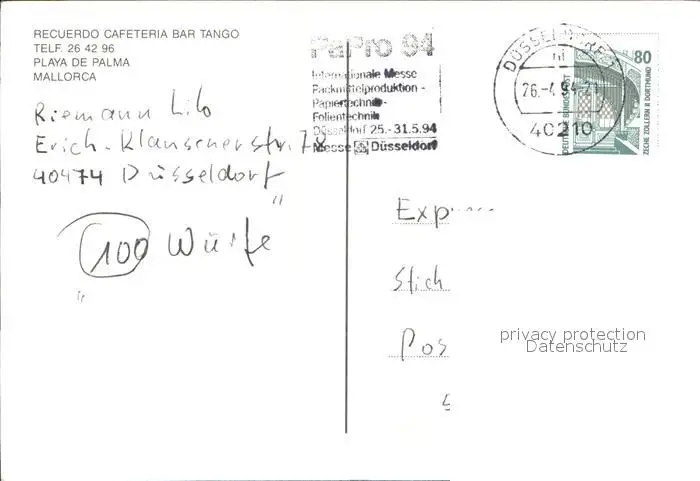 RECUERDO CAFETERIA BAR TANGO
TELF. 26 42 96
PLAYA DE PALMA
MALLORCA
Riemann Lilo
Erich-Klausenerstr. 78
40474 Düsseldorf
"100 Würfe"
PaPro 94
Internationale Messe
Packmittelproduktion -
Papiertechnik-
Folientechnik
Düsseldorf 25.-31.5.94
Messe Düsseldorf
DÜSSELDORF
26.-4.94-21
40210
80
DEUTSCHE BUNDESPOST
ZECHE ZOLLERN II DORTMUND
Stich
Pos
privacy protection
Datenschutz